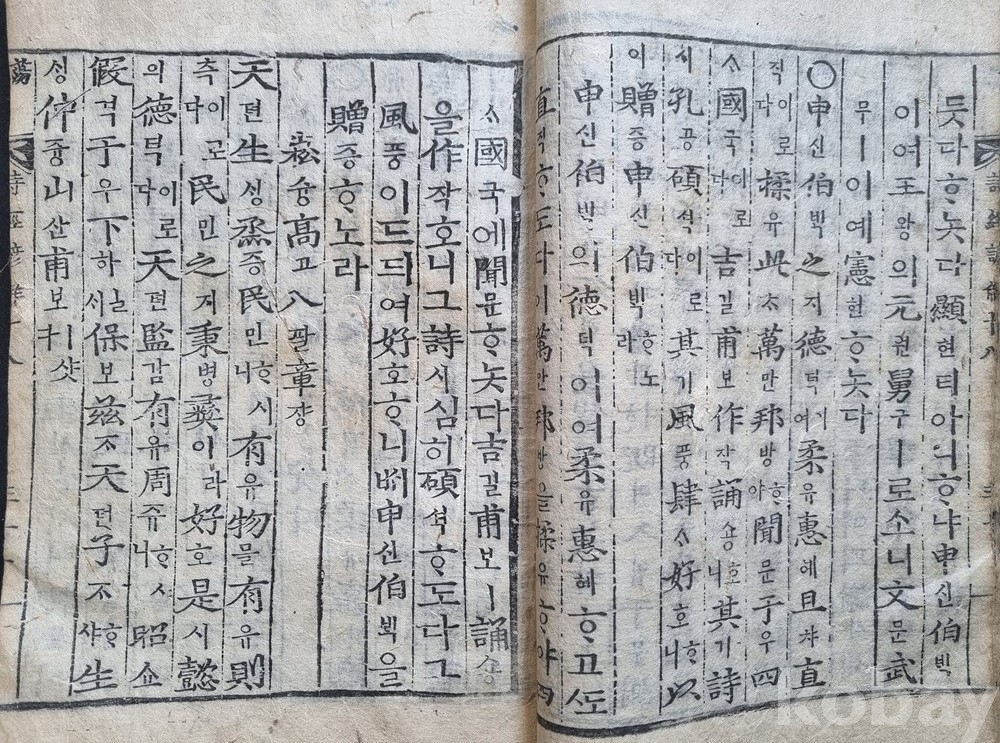 詩經諺解十八
듯다ᄒᆞ놋다顯현티아니ᄒᆞ냐申신伯ᄇᆡᆨ
이여王왕의元원舅구ㅣ로소니文문武
무ㅣ이예憲헌ᄒᆞ놋다
○申신伯ᄇᆡᆨ之지德덕이여柔유惠혜且챠直
직이로다揉유此ᄎᆞ萬만邦방ᄒᆞ야聞문于우四
ᄉᆞ國국이로다吉길甫보作작誦숑ᄒᆞ니其기詩
시孔공碩셕이로다其기風풍肆ᄉᆞ好호ᄒᆞ니以
이贈증申신伯ᄇᆡᆨᄒᆞ노라
申신伯ᄇᆡᆨ의德덕이여柔유惠혜ᄒᆞ고ᄯᅩ
直직ᄒᆞ도다이萬만邦방을揉유ᄒᆞ야四
ᄉᆞ國국에聞문ᄒᆞ놋다吉길甫보ㅣ誦숑
을作작호니그詩시심히碩셕ᄒᆞ도다그
風풍이드듸여好호ᄒᆞ니ᄡᅥ申신伯ᄇᆡᆨ을
贈증ᄒᆞ노라
崧슝高고八팔章쟝
天텬生ᄉᆡᆼ烝증民민ᄒᆞ시니有유物믈有유則
측이로다民민之지秉병彝이라好호是시懿
의德덕이로다天텬監감有유周쥬ᄒᆞ시니昭쇼
假격于우下하시늘保보玆ᄌᆞ天텬子ᄌᆞᄒᆞ샤生
ᄉᆡᆼ仲듕山산甫보
蕩
kobay